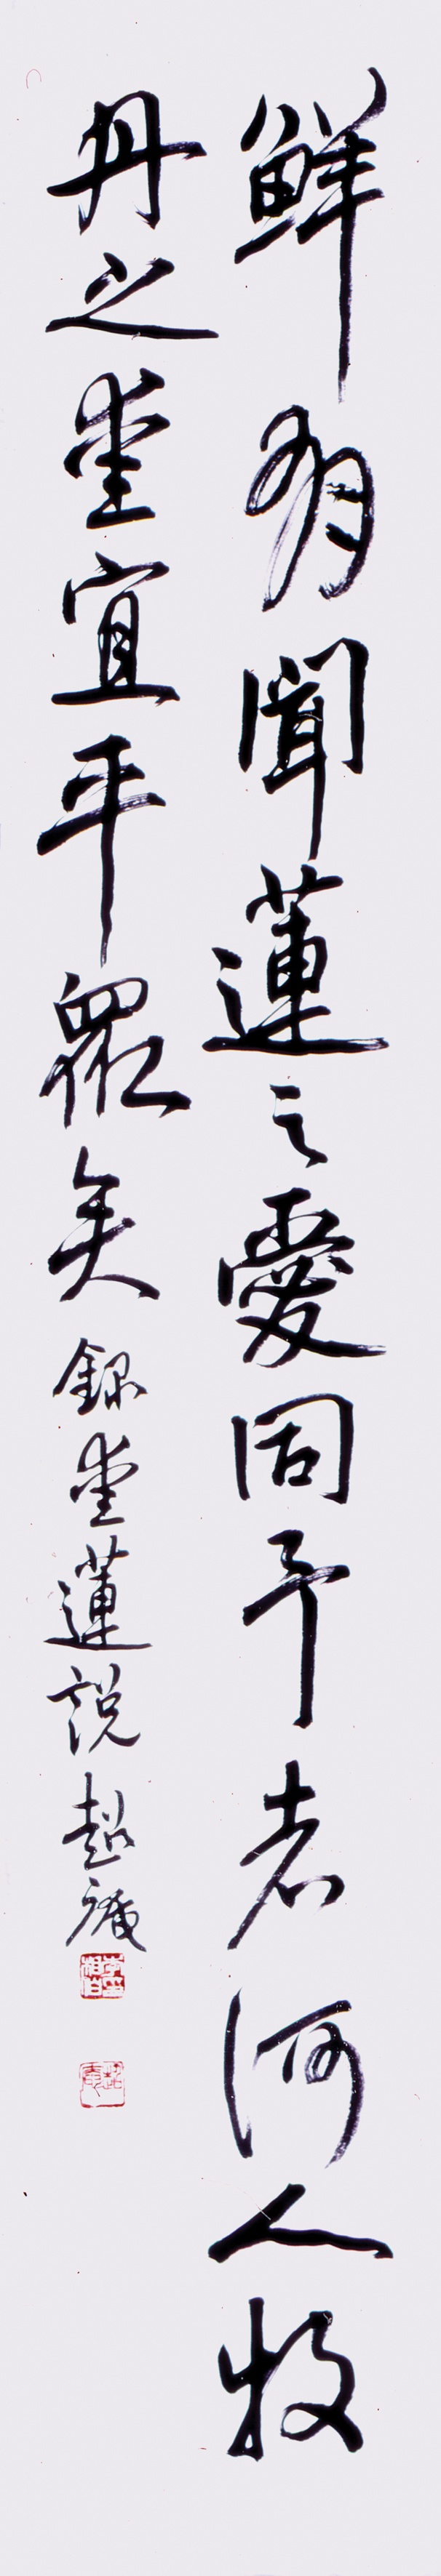 鮮有聞蓮之愛同予者何人牧
丹之愛宜乎眾矣錄愛蓮說超